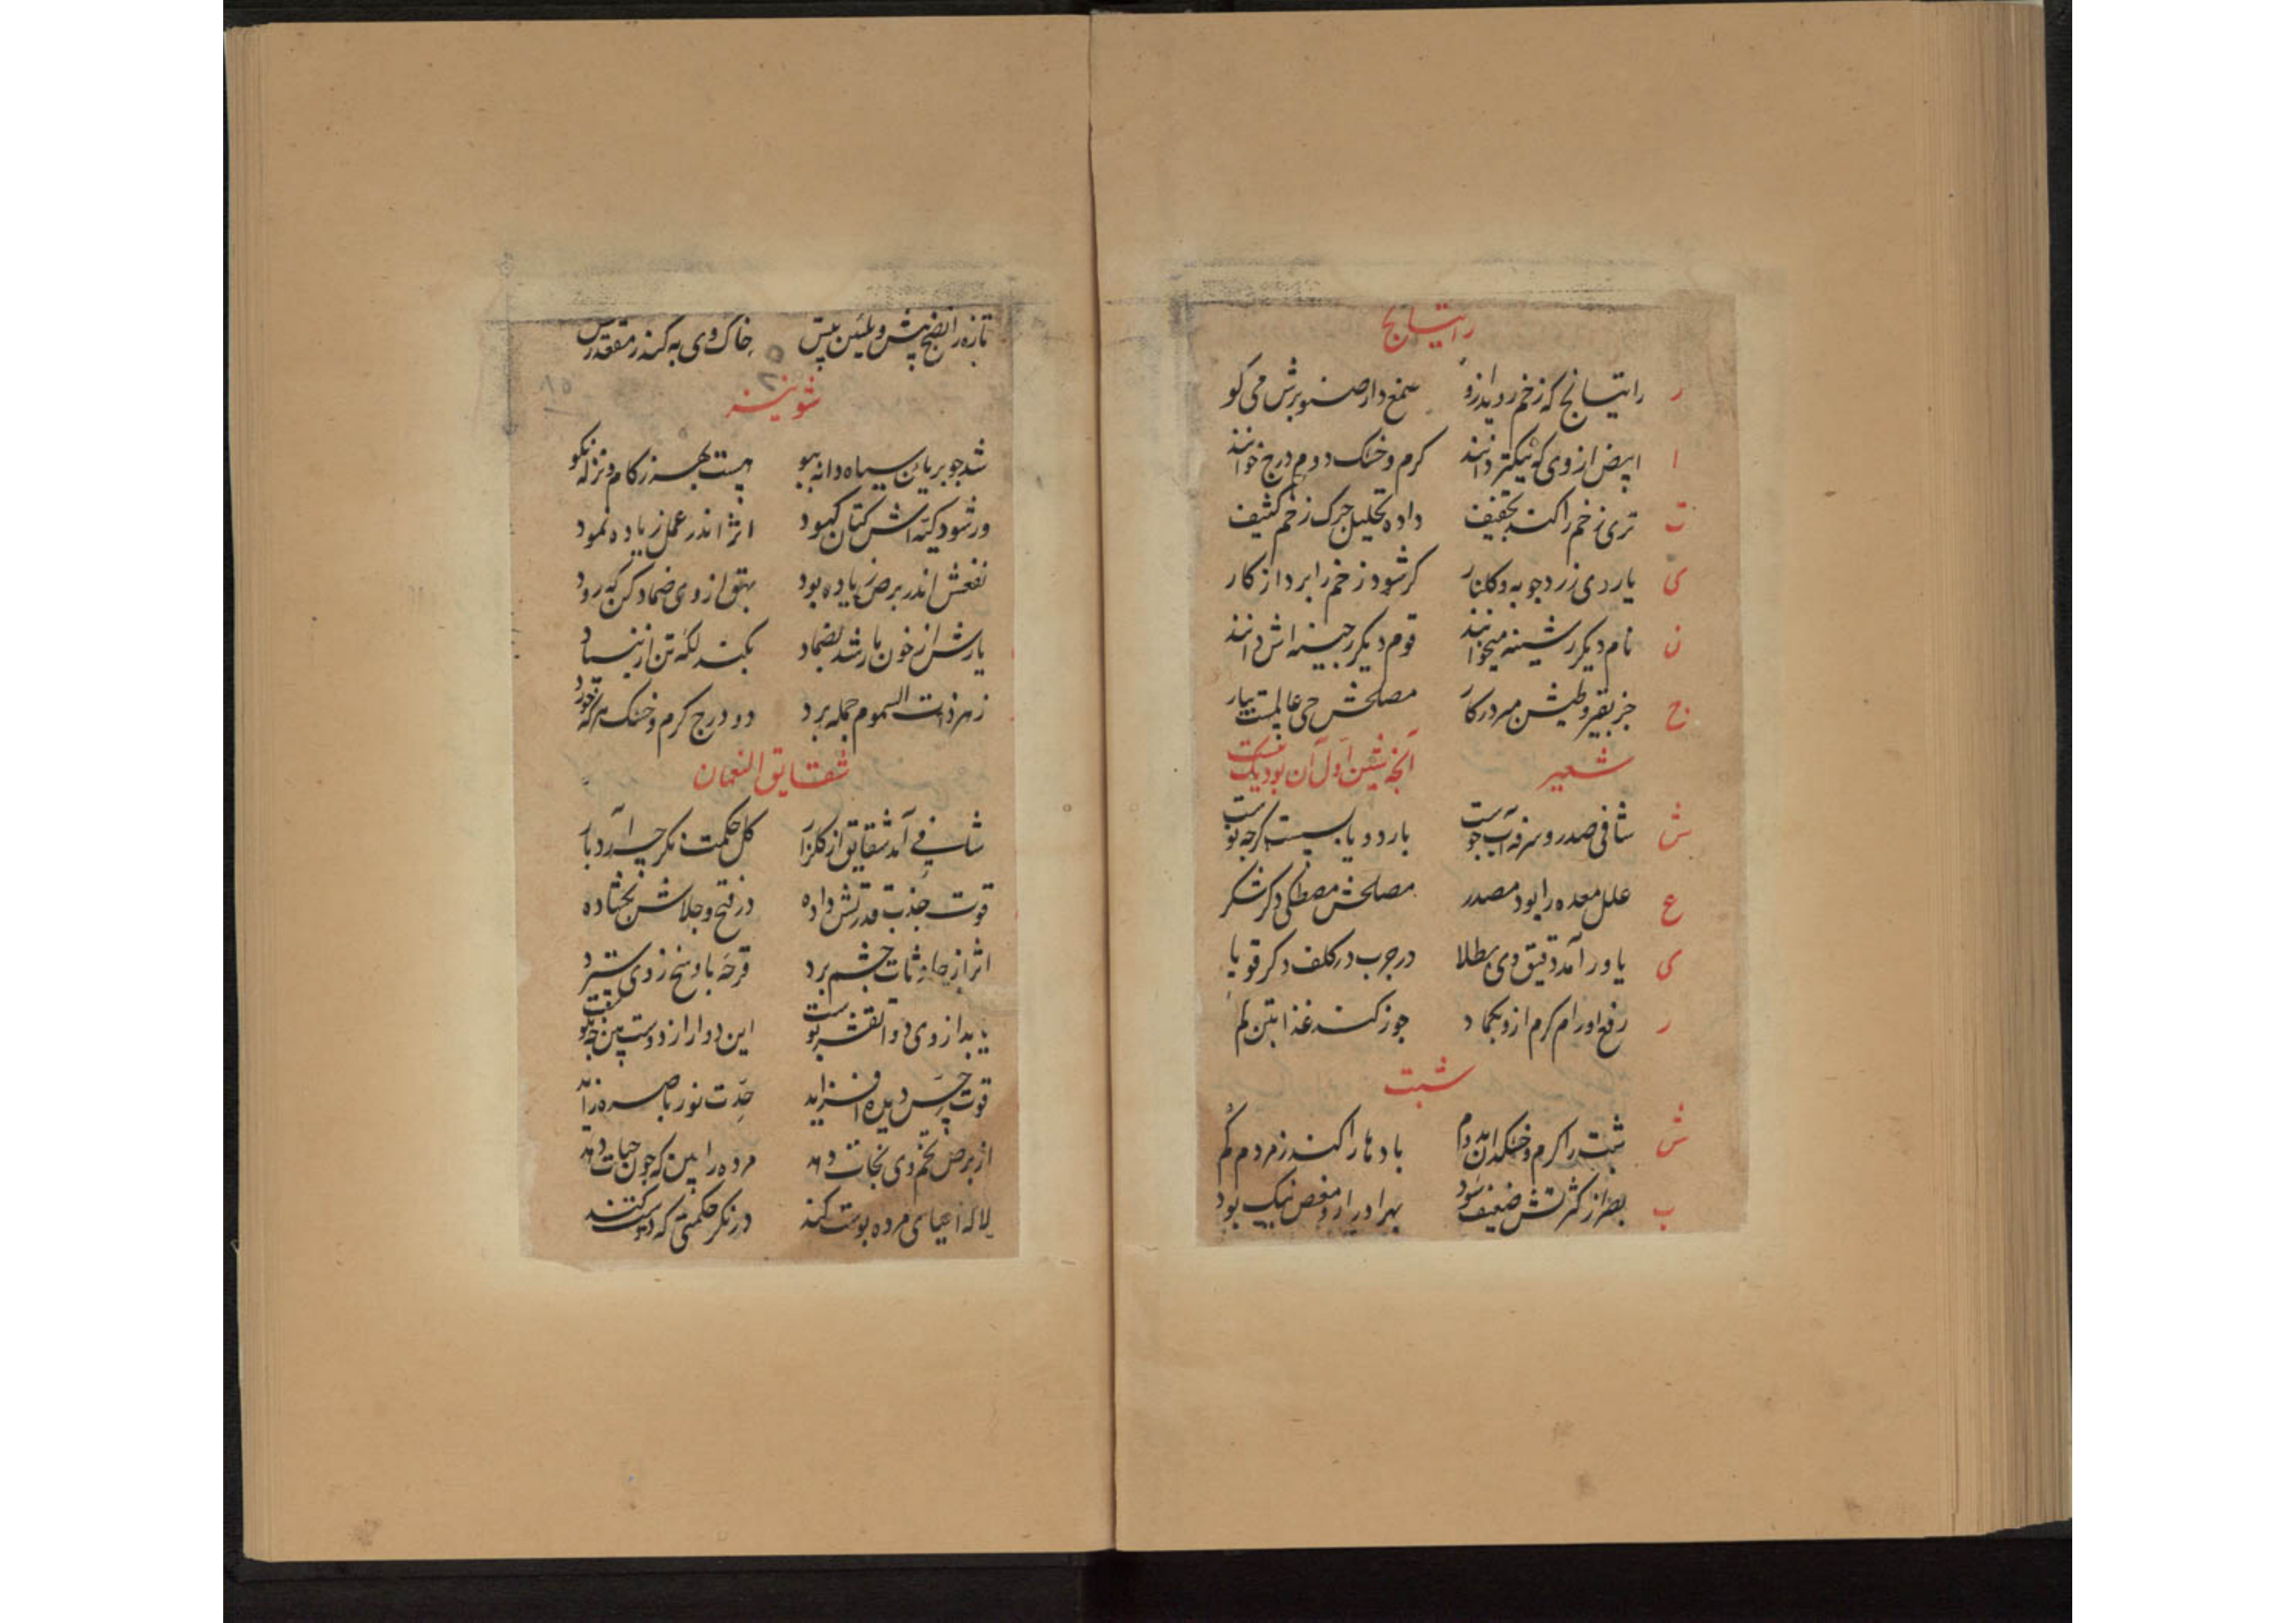 راتیانج
ر راتیانج که زخم روید ازو صمغ دار صنوبرش می کو
ا ابیض از وی که نیکتر دانند کرم و خشک دوم درج خوانند
ت تری زخم را کند تجفیف داده تحلیل جرک زخم کثیف
ی یار دی زرد جوبه و کلنار کر شود زخم را برد از کار
ن نام دیکر رشینه میخوانند قوم دیکر رجینه اش دانند
ج جز بقیروطیش مبر در کار مصلحش حی عالمست بیار
شعیر آنجه بشین اول آن بود نیکست
ش شافی صدر و سرفه آب جوست بارد و یابسست کرجه نوست
ع علل معده را بود مصدر مصلحش مصطکی دکر شکر
ی یاور آمد دقیق وی بطلا در جرب در کلف دکر قوبا
ر رفع اورام کرم ازو بکماد جوز کند غذا بتن کم
شبت
ش شبت را کرم و خشکدان دوم بادها را کند ز مردم کم
ب بصر از کثرتش ضعیف شود بهر ادرار و مغص نیک بود
تازه را نضج بیش و بلیین بیس خاک وی به کند مقعد رس
۸۵
شونیز
شد جو بریان سیاه دانه ببو هست بهر زکام و نزله نکو
ور شود کیسه اش کتان کبود اثر اندر عمل زیاده نمود
نفعش اندر برص زیاده بود بهق از وی ضماد کن که رود
یارش از خون مار شد بضماد بکند لکه تن از بنیاد
زهر ذات السموم جمله برد دو درج کرم و خشک هر که خورد
شقایق النعمان
شافی آمد شقایق از کلزار کل حکمت نکر چه آرد بار
قوت جذب قدرتش داده در فتح و جلاش بکشاده
اثر از حادثات چشم برد قرحه با وسخ ز وی سترد
یابد از وی دوا تقشر بوست این دوا را ز دوست بین جه نکوست
قوت حس دیده افزاید حدت نور باصره زاید
از برص تخم وی نجات دهد مرده را بین که جون حیات دهد
لاله احیای مرده بوست کند در نکر حکمتی که دوست کند